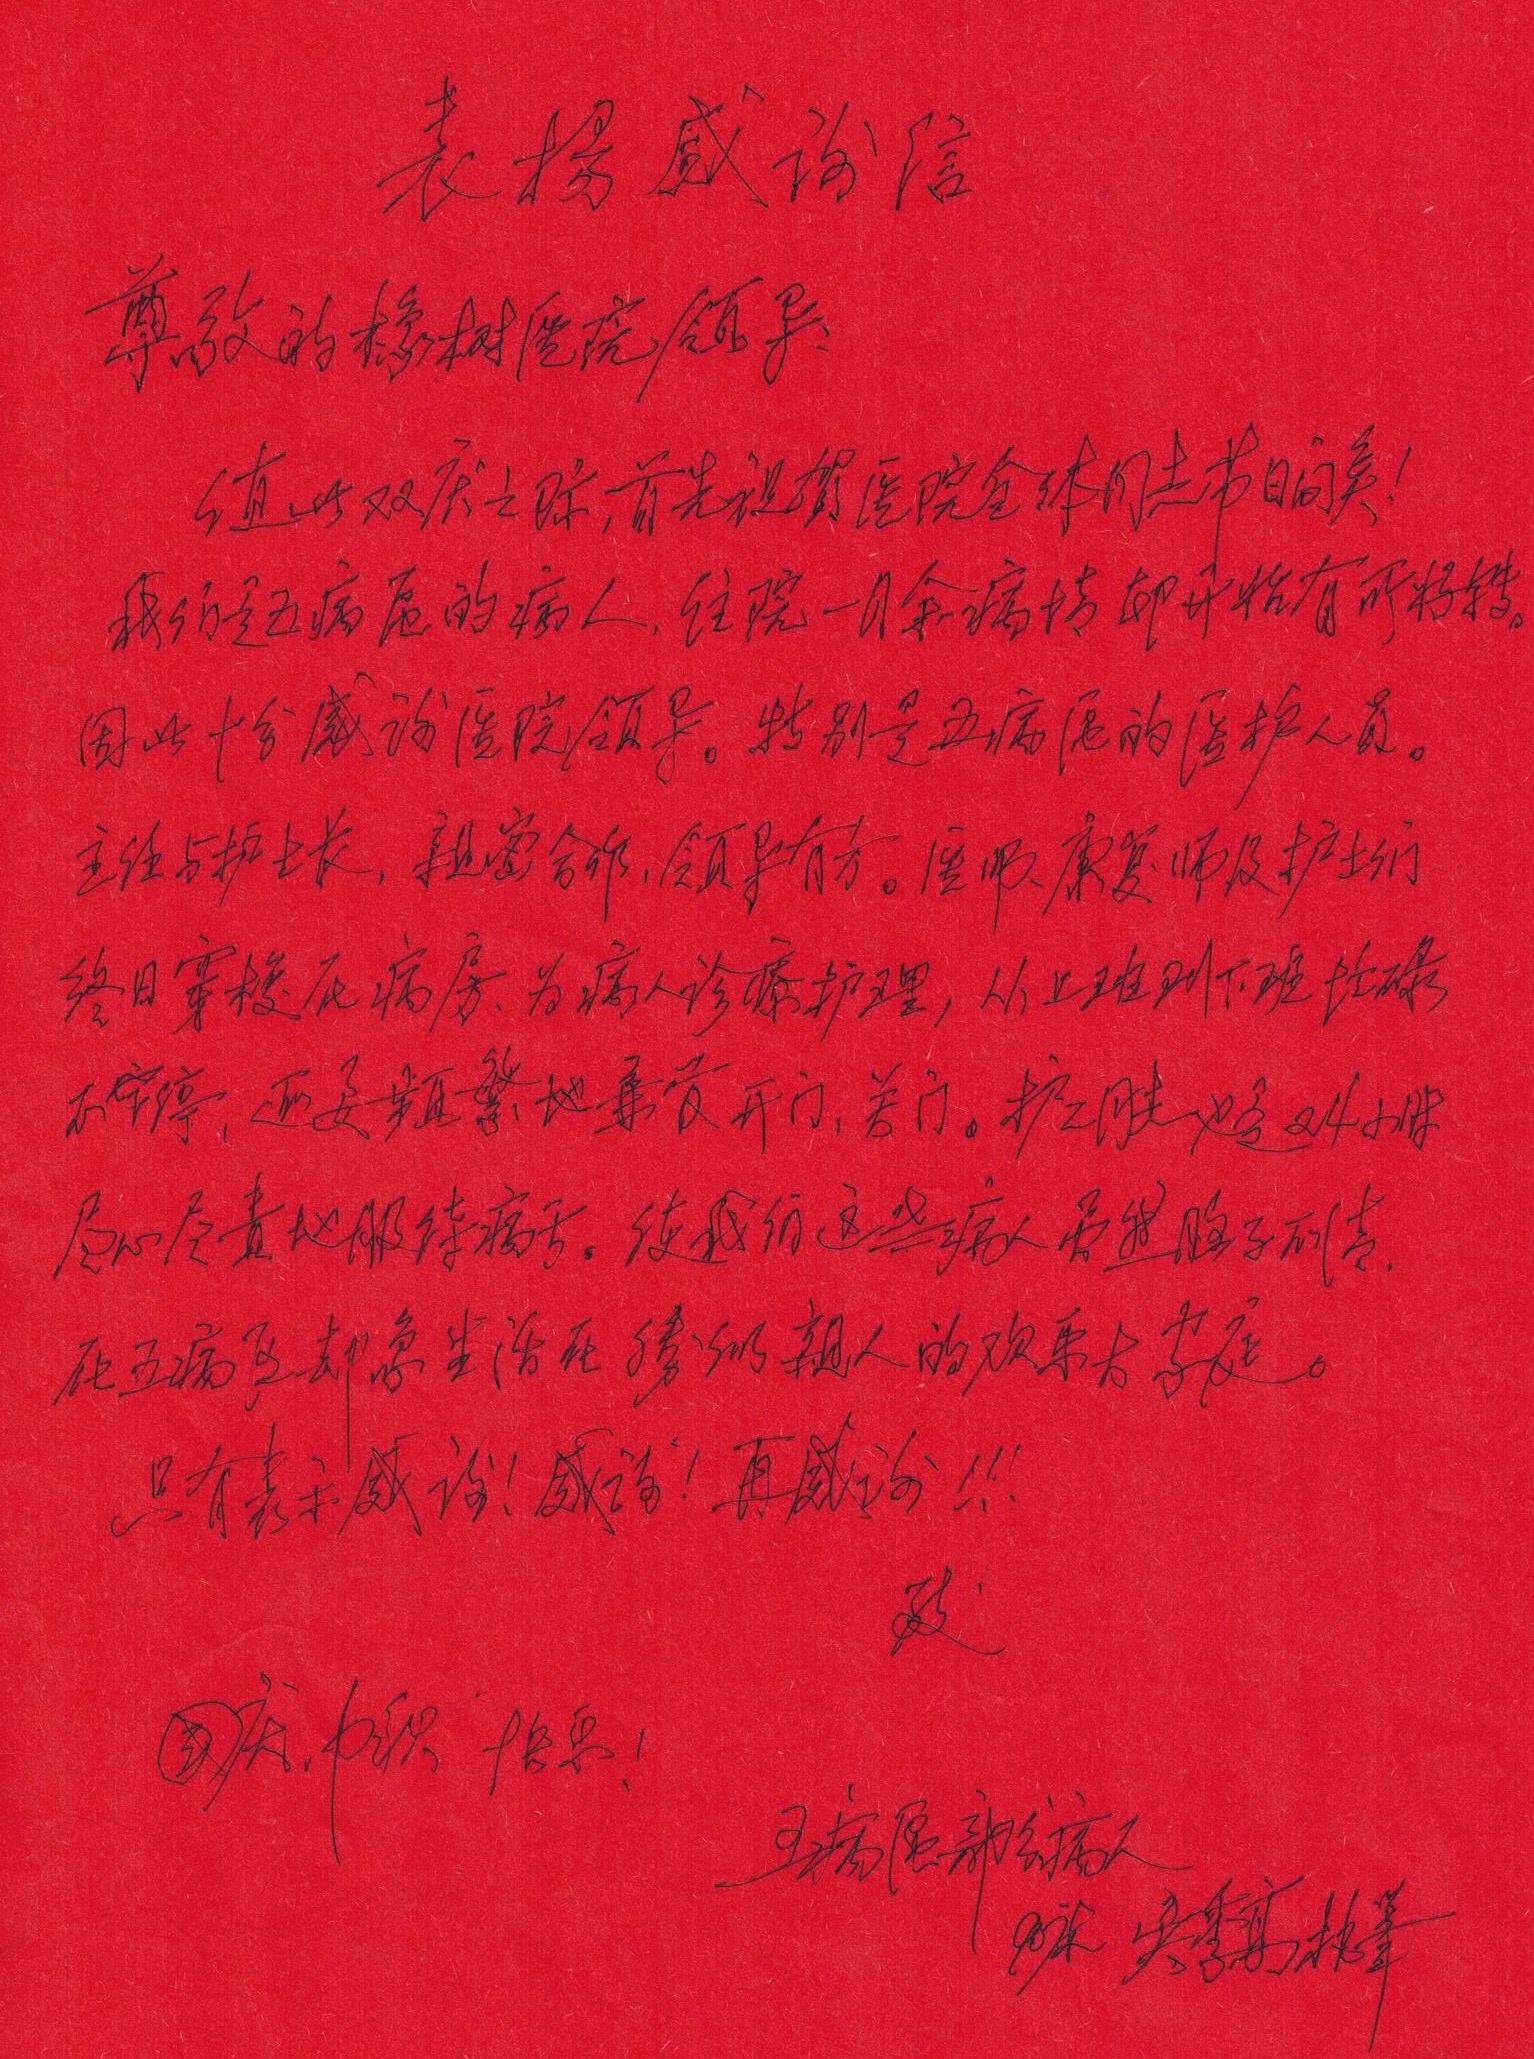 表扬感谢信
尊敬的橡树医院领导:
值此双庆之际,首先祝贺医院全体同志节日愉美!
我们是五病区的病人,住院一月余病情都开始有所好转。
因此十分感谢医院领导。特别是五病区的医护人员。
主任与护士长,亲密合作,领导有方。医师、康复师及护士们
终日穿梭在病房、为病人诊療护理,从上班到下班忙碌
不停,还要频繁地开门、关门。护工们也是24小时
尽心尽责地服侍病号。使我们这些病人虽然脑子不清,
在五病区却象生活在亲人的欢乐大家庭。
只有表示感谢!感谢!再感谢!!!
致
国庆、中秋 快乐!
五病区部分病人
床 吴季高 执筆